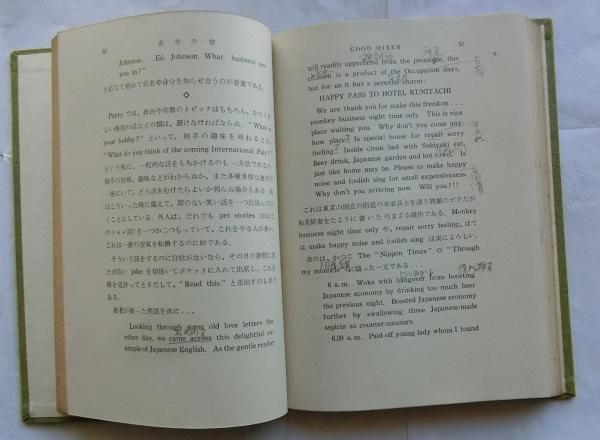 世界の窓
Johnson... Ed. Johnson. What business are
you in?"
に応じて初めて氏名や身分を知らせ合うのが普通である。
Party では、政治や宗教のトピックはもちろん、かたくる
しい商売の話などの類は、避けなければならぬ。"What is
your hobby?" といって、相手の趣味を尋ねるとか、
"What do you think of the coming International Fair?"
という風に、一般的な話をもちかけるのも一方法である。
相手の性格、趣味などがわからぬか、また多種多様な連中に
一座にいて、どう話をむけたらよいか判らぬ場合もある
こういった時に備えて、罪のない笑い話を一つ仕込んでお
くことにしている。外人は、だれでも、pet stories (おはこ
のシャレ話) を一つか二つもっていて、これをやる人が多い。
これは一座の空気を転換するのに妙である。
そういう話をするのに自信がないなら、その日の新聞に
面白い joke を切抜いてポケットに入れて出席し、これを
時を見はからってとりだして、"Read this." と差出すのもし
著者が使った笑話を次に...
Looking through some old love letters the
other day, we came across this delightful ex-
ample of Japanese English. As the gentle reader
GOOD MIXER
57
will readily apprehend from the preample, this
effusion is a product of the Occupation days,
but for us it has a perennial charm:
HAPPY PASS TO HOTEL KUNITACHI
We are thank you for make this freedom...
monkey business night time only. This is nice
place waiting you. Why don't you come any-
how place? Is special house for repair sorry
feeling? Inside clean bed with Sukiyaki eat,
Beer drink, Japanese garden and hot towel. Is
just like home may be. Please to make happy
noise and foolish sing for small expensiveness.
Why don't you arriving now. Will you!!!
これは東京の国立の附近の米軍兵士を誘う旅館のビラだが
和英辞書をたよりに書いた巧まざる傑作である。Monkey
business night time only や、repair sorry feeling、はては
make happy noise and foolish sing は実によろしい。
次のは、かつて The "Nippon Times" の "Through
my monocle" に載った一文である...
6 a.m. Woke with hangover from boosting
Japanese economy by drinking too much beer
the previous night. Boosted Japanese economy
further by swallowing three Japanese-made
aspirin as counter-measure.
6.30 a.m. Paid off young lady whom I found